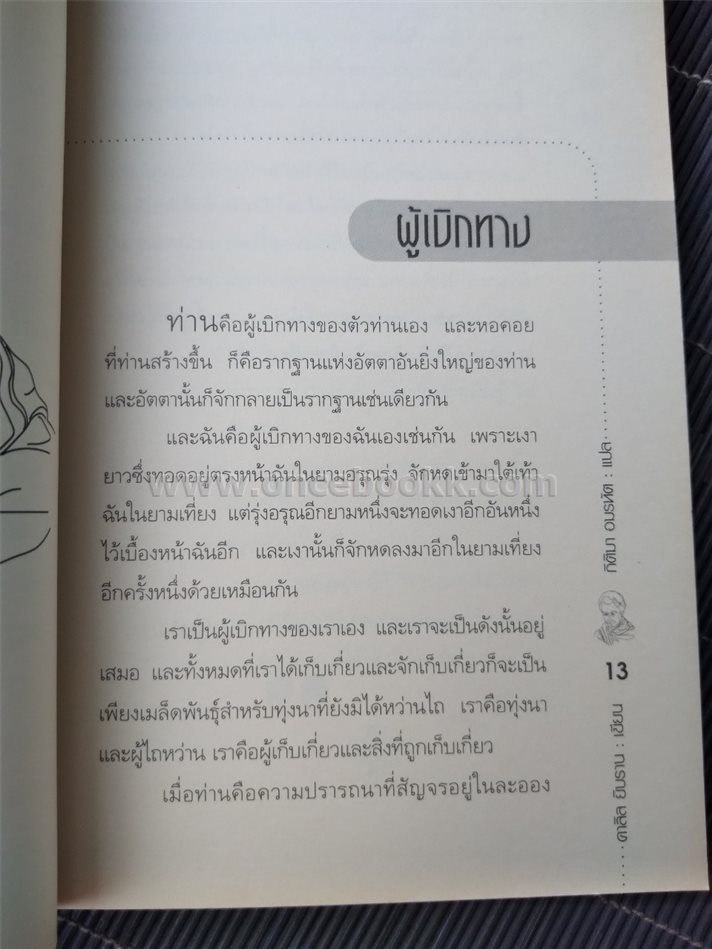 ผู้เบิกทาง
ท่านคือผู้เบิกทางของตัวท่านเอง และหอคอย
ที่ท่านสร้างขึ้น ก็คือรากฐานแห่งอัตตาอันยิ่งใหญ่ของท่าน
และอัตตานั้นก็จักกลายเป็นรากฐานเช่นเดียวกัน
และฉันคือผู้เบิกทางของฉันเองเช่นกัน เพราะเงา
ยาวซึ่งทอดอยู่ตรงหน้าฉันในยามอรุณรุ่ง จักหดเข้ามาใต้เท้า
ฉันในยามเที่ยง แต่รุ่งอรุณอีกยามหนึ่งจะทอดเงาอีกอันหนึ่ง
ไว้เบื้องหน้าฉันอีก และเงานั้นก็จักหดลงมาอีกในยามเที่ยง
อีกครั้งหนึ่งด้วยเหมือนกัน
เราเป็นผู้เบิกทางของเราเอง และเราจะเป็นดังนั้นอยู่
เสมอ และทั้งหมดที่เราได้เก็บเกี่ยวและจักเก็บเกี่ยวก็จะเป็น
เพียงเมล็ดพันธุ์สำหรับทุ่งนาที่ยังมิได้หว่านไถ เราคือทุ่งนา
และผู้ไถหว่าน เราคือผู้เก็บเกี่ยวและสิ่งที่ถูกเก็บเกี่ยว
เมื่อท่านคือความปรารถนาที่สัญจรอยู่ในละออง
กิติมา อมรทัต : แปล
13
คาลิล ยิบราน : เขียน
www.oncebookk.com